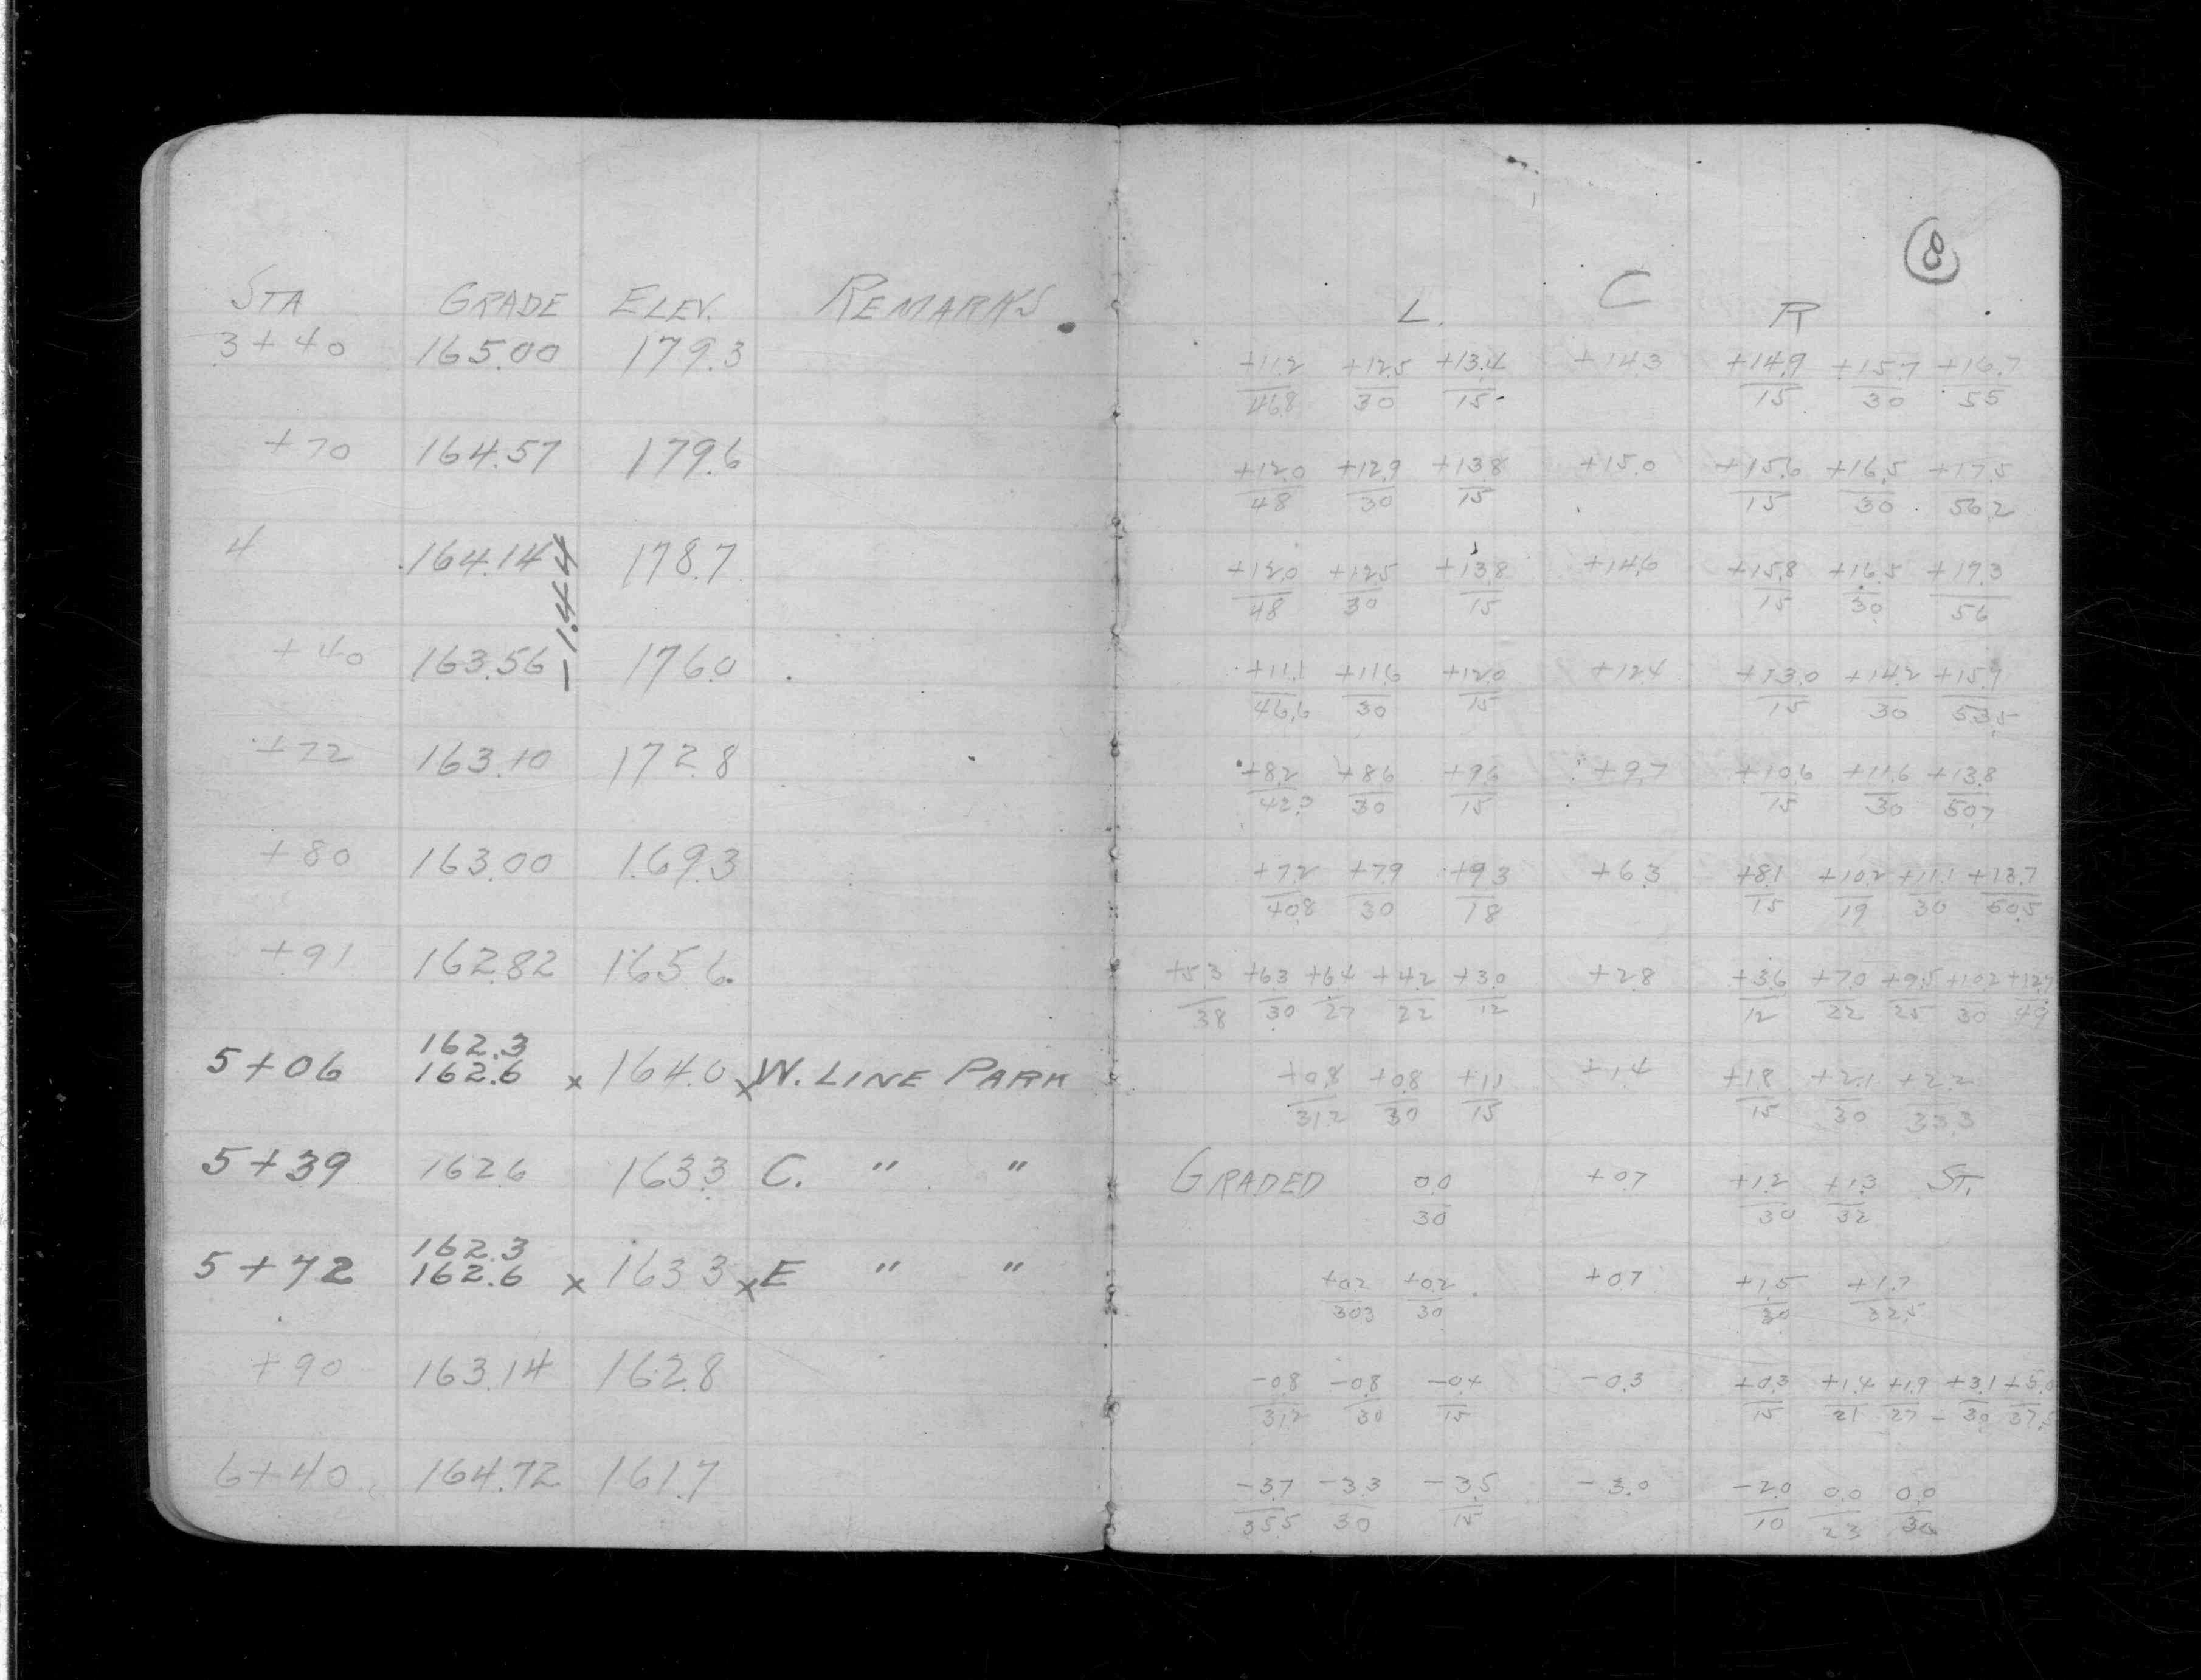 8
STA GRADE ELEV. REMARKS
L. C R
3+40 165.00 179.3
+11.2 +12.5 +13.4 +14.3 +14.9 +15.7 +16.7
46.8 30 15 15 30 55
+70 164.57 179.6
+12.0 +12.9 +13.8 +15.0 +15.6 +16.5 +17.5
48 30 15 15 30 56.2
4 164.14 178.7
-1.44
+12.0 +12.5 +13.8 +14.6 +15.8 +16.5 +17.3
48 30 15 15 30 56
+40 163.56 176.0
+11.1 +11.6 +12.0 +12.4 +13.0 +14.2 +15.7
46.6 30 15 15 30 53.5
+72 163.10 172.8
+8.2 +8.6 +9.6 +9.7 +10.6 +11.6 +13.8
42.3 30 15 15 30 50.7
+80 163.00 169.3
+7.2 +7.9 +9.3 +6.3 +8.1 +10.2 +11.1 +13.7
40.8 30 18 15 19 30 50.5
+91 162.82 165.6
+5.3 +6.3 +6.4 +4.2 +3.0 +2.8 +3.6 +7.0 +9.5 +10.2 +12.7
38 30 27 22 12 12 22 25 30 49
162.3
5+06 162.6 x 164.0 x W. LINE PARK
+0.8 +0.8 +1.1 +1.4 +1.8 +2.1 +2.2
31.2 30 15 15 30 33.3
5+39 162.6 163.3 C. " "
GRADED 0.0 +0.7 +1.2 +1.3 ST.
30 30 32
162.3
5+72 162.6 x 163.3 x E " "
+0.2 +0.2 +0.7 +1.5 +1.7
30.3 30 30 32.5
+90 163.14 162.8
-0.8 -0.8 -0.4 -0.3 +0.3 +1.4 +1.9 +3.1 +5.0
31.2 30 15 15 21 27 - 30 37.5
6+40 164.72 161.7
-3.7 -3.3 -3.5 -3.0 -2.0 0.0 0.0
35.5 30 15 10 23 30